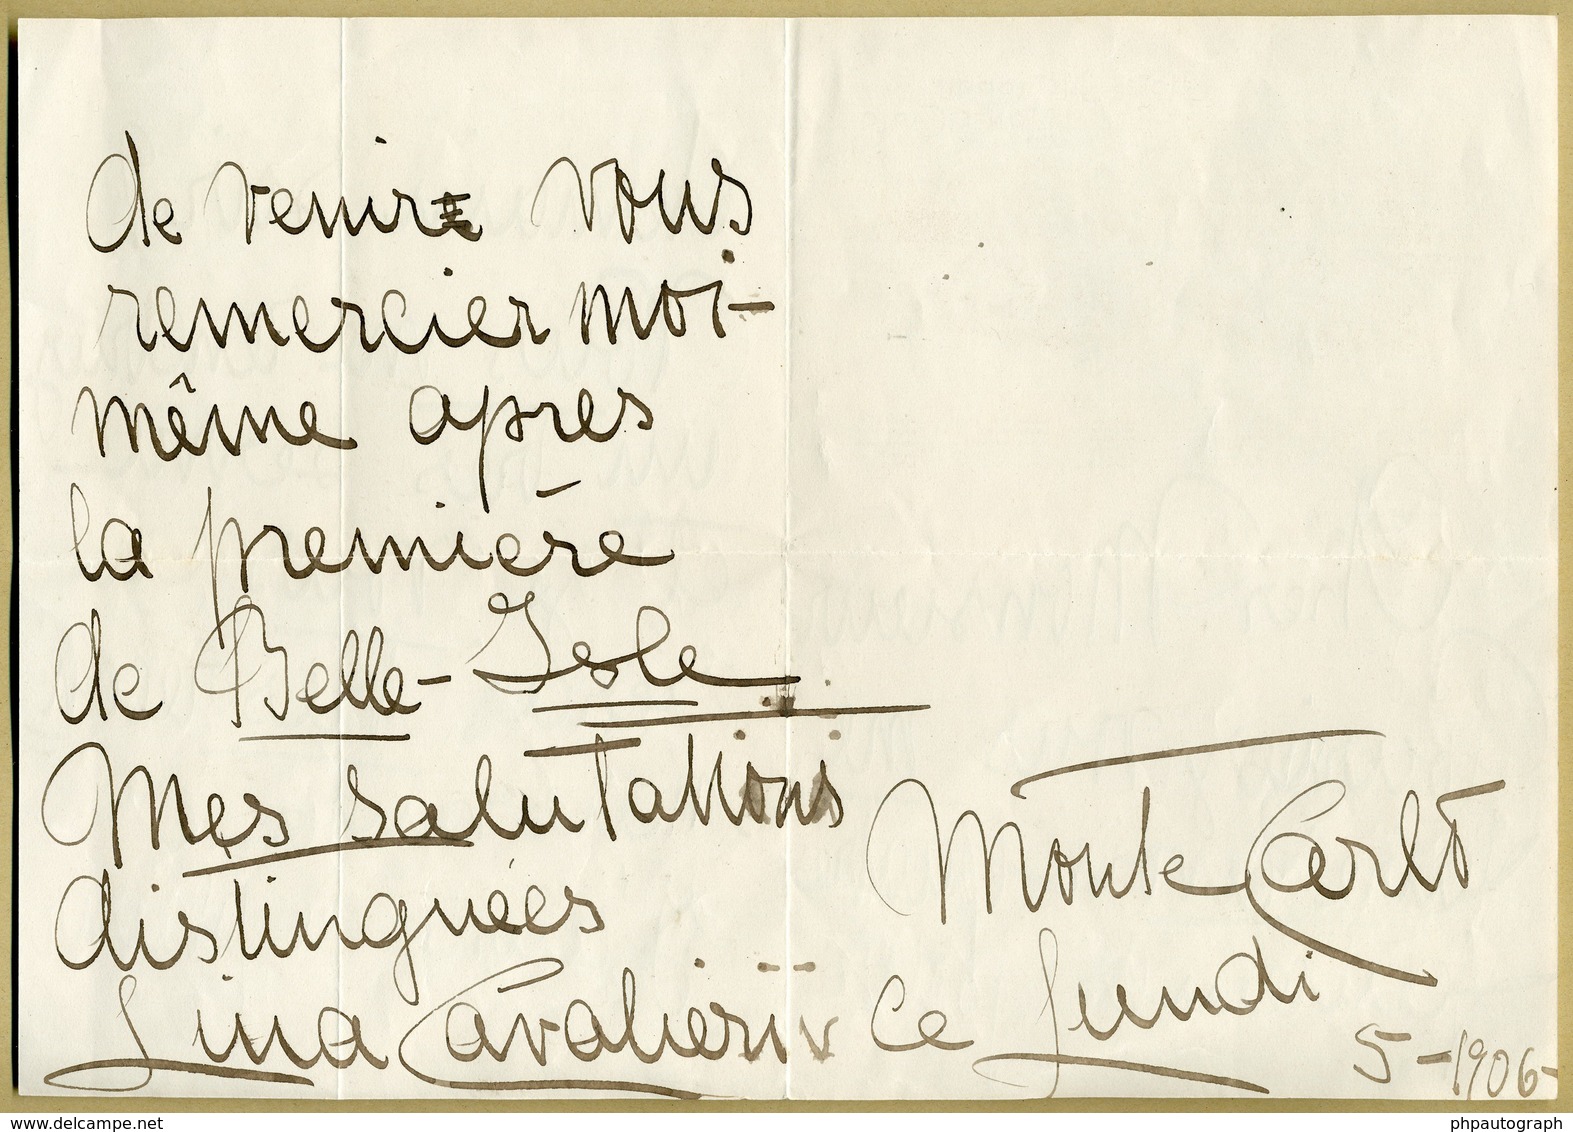 de venir vous
remercier moi-
même après
la première
de Belle-Isle
Mes salutations
distinguées
Lina Cavalieri
Monte Carlo
Ce Lundi
5-1906-
delcampe.net
phpautograph